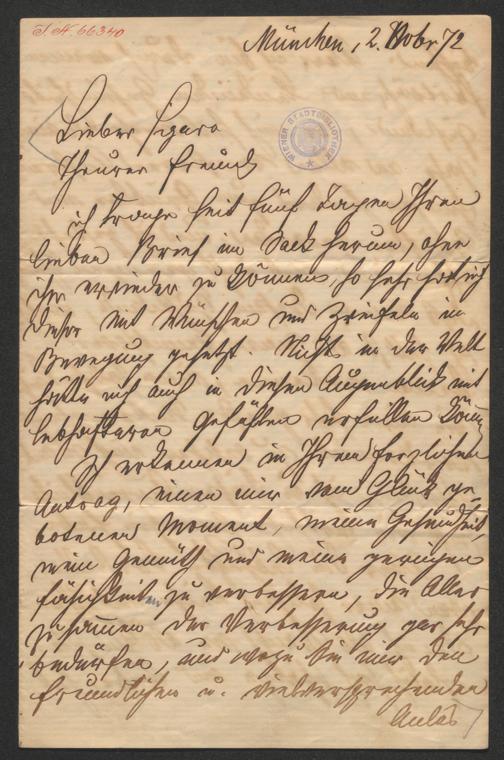 J.N. 66340
München, 2. Nobr 72
WIENER STADTBIBLIOTHEK
Lieber Figaro
Theurer Freund
ich trage seit fünf Tagen Ihren
lieben Brief im Sack herum, ohne
ihn erwieder zu können, so sehr hat mich
dieser mit Wünschen und Zweifeln in
Bewegung gesetzt. Nichts in der Welt
hätte mich auch in diesem Augenblick mit
lebhafteren Gefühlen erfüllen könn
Ich erkenne in Ihrem herzlichen
Antrag, einen mir vom Glück ge
botenen Moment, meine Gesundheit,
mein Gemüth und meine geringen
Fähigkeiten zu verbessern, die Alle
zusammen der Verbesserung gar sehr
bedürfen, und wozu Sie mir den
freundlichen u. vielversprechenden
Anlaß